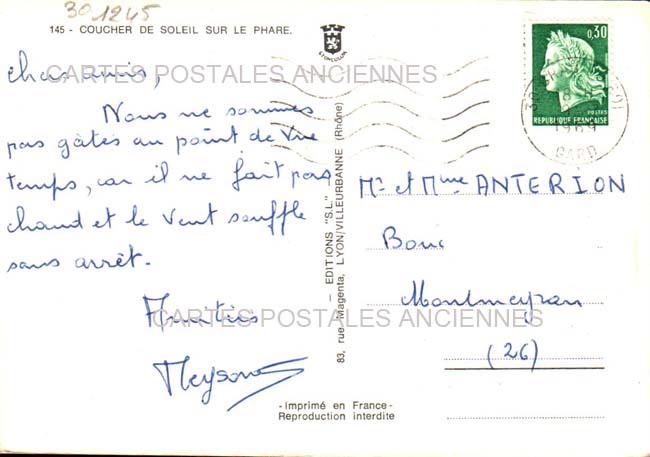 301245
145 - COUCHER DE SOLEIL SUR LE PHARE.
chers amis,
Nous ne sommes
pas gâtés au point de vue
temps, car il ne fait pas
chaud et le vent souffle
sans arrêt.
Amitiés
Meyson
- EDITIONS "S.L." -
83, rue Magenta, LYON/VILLEURBANNE (Rhône)
0,30
POSTES
REPUBLIQUE FRANÇAISE
1969
GARD
Mr et Mme ANTERION
Bouc
Montmeyran
(26)
-Imprimé en France-
Reproduction interdite
CARTES POSTALES ANCIENNES
CARTES POSTALES ANCIENNES